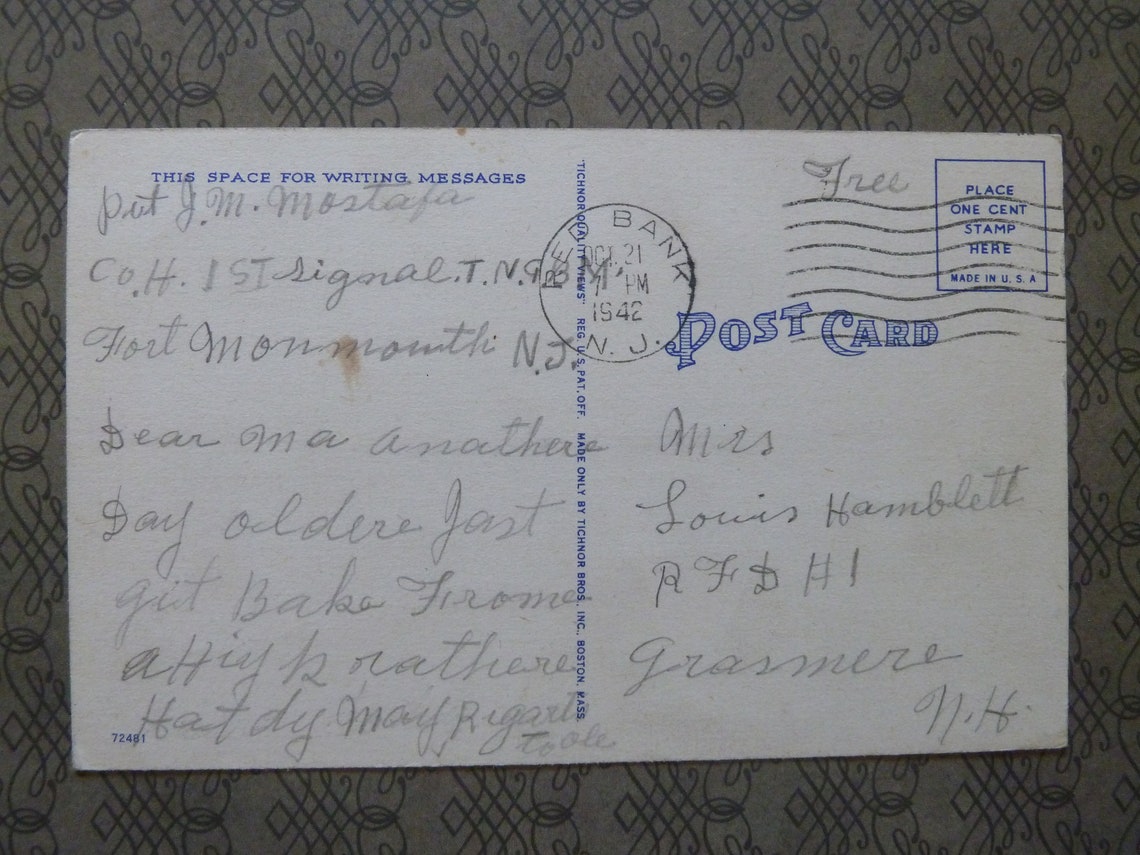 THIS SPACE FOR WRITING MESSAGES
Pvt J. M. Mostafa
Co. H. 1 ST Signal. T. N. G B M.
Fort Monmouth N.J.
Dear Ma anathere
Day oldere Jast
git Bake Frome
a Hiyk rathere
Hat dy May Rigarts
to ole
72481
"TICHNOR QUALITY VIEWS" REG. U. S. PAT. OFF. MADE ONLY BY TICHNOR BROS., INC., BOSTON, MASS.
RED BANK
OCT. 21
7 PM
1942
N. J.
Free
PLACE
ONE CENT
STAMP
HERE
MADE IN U. S. A
POST CARD
Mrs
Louis Hamblett
R F D # 1
Grasmere
N. H.